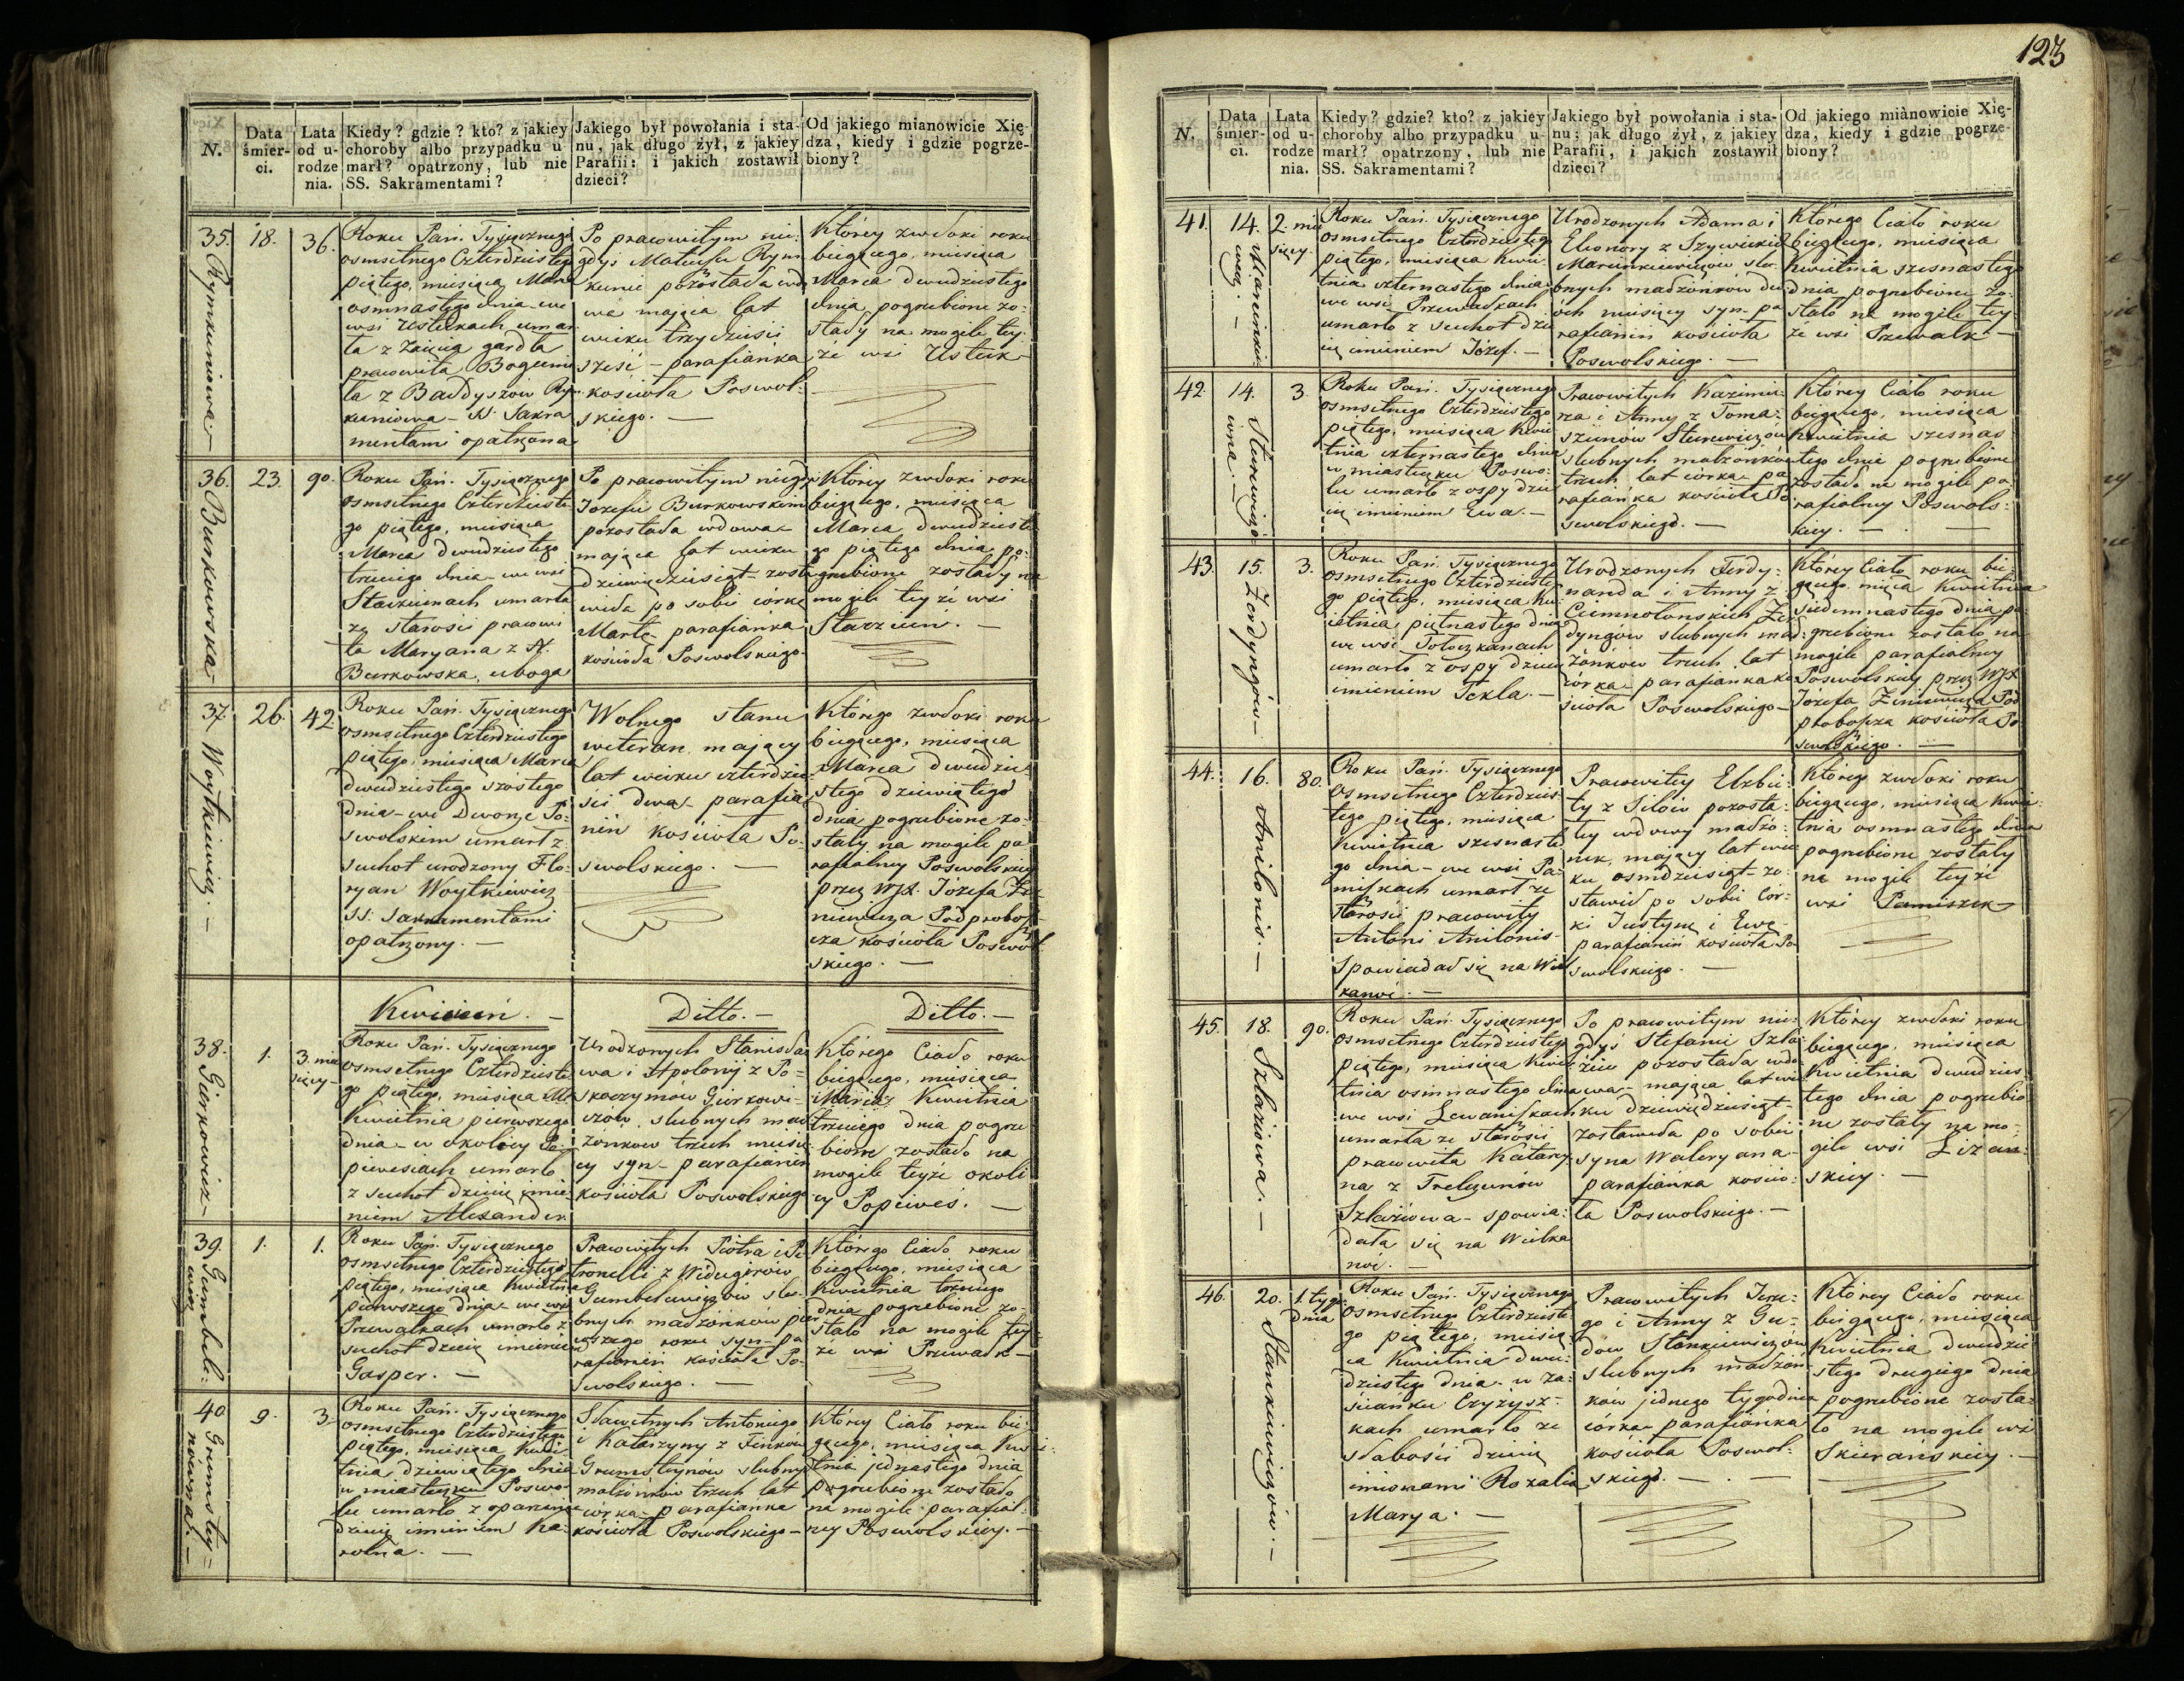 N.
Data śmier-
ci.
Lata
od u-
rodze
nia.
Kiedy? gdzie? kto? z jakiey
choroby albo przypadku u
marł? opatrzony, lub nie
SS. Sakramentami?
Jakiego był powołania i sta-
nu, jak długo żył, z jakiey
Parafii: i jakich zostawił
dzieci?
Od jakiego mianowicie Xię-
dza, kiedy i gdzie pogrze-
biony?
35.
Rymkuniowa.
18.
36.
Roku Pań. Tysiącznego
osmsetnego Czterdziestego
piątego, miesiąca Marca
osmnastego dnia we
wsi Ustukach umar
ła z
gardła
pracowita Bogumi
ła z Bałdyszów Rym
kuniowa - SS. Sakra
mentami opatrzona
Po pracowitym nie-
gdyś Mateuszu Rym
kunie pozostała wdo
wa mająca lat
wieku trzydzieści
sześć - parafianka
kościoła Poswol-
skiego. -
Którey zwłoki roku
bieżącego, miesiąca
Marca dwudziestego
dnia pogrzebione zo-
stały na mogile tey-
że wsi Ustuk
36.
Burkowska
23.
90.
Roku Pań. Tysiącznego
osmsetnego Czterdzieste
go piątego, miesiąca
Marca dwudziestego
trzeciego dnia - we wsi
umarła
ze starości pracowi
ta Maryana z N.
Burkowska, uboga
Po pracowitym niegdyś
Jozefie Burkowskim
pozostała wdowa -
mająca lat wieku
dziewiędziesiąt - zosta
wiła po sobie córkę
Martę - parafianka
kościoła Poswolskiego
Którey zwłoki roku
bieżącego, miesiąca
Marca dwudzieste
go piątego dnia po-
grzebione zostały na
mogile teyże wsi
37.
Woytkiewicz. -
26.
42
Roku Pań. Tysiącznego
osmsetnego Czterdziestego
piątego, miesiąca Marca
dwudziestego szóstego
dnia - we Dworze Po-
swolskim umarł z
suchot urodzony Flo-
ryan Woytkiewicz
SS. Sakramentami
opatrzony. -
Wolnego stanu
weteran, mający
lat wieku czterdzie-
ści dwa - parafia
nin kościoła Po-
swolskiego. -
Którego zwłoki roku
bieżącego, miesiąca
Marca dwudzie-
stego dziewiątego
dnia pogrzebione zo-
stały na mogile pa
rafialney Poswolskiey
przez WJX. Józefa Zi-
niewicza Podprobosz-
cza kościoła Poswol-
skiego. -
Kwiecień. -
Ditto. -
Ditto. -
38.
Gierkowicz -
1.
3. mie
sięcy -
Roku Pań. Tysiącznego
osmsetnego Czterdzieste
go piątego, miesiąca
Kwietnia pierwszego
dnia - w okolicy Po-
piwesiach umarło
z suchot dziecię imie-
niem Alexander
Urodzonych Stanisła-
wa i Apolonij z Po-
skoczymów Gierkowi-
czów, slubnych mał
żonkow trzech miesię
cy syn - parafianin
kościoła Poswolskiego
Którego Ciało roku
bieżącego, miesiąca
Marca Kwietnia
trzeciego dnia pogrze
bione zostało na
mogile teyże okoli
cy Popiweś. -
39.
Gumbele-
wicz
1.
1.
Roku Pań. Tysiącznego
osmsetnego Czterdziestego
piątego, miesiąca Kwietnia
pierwszego dnia - we wsi
Przewałkach umarło z
suchot dziecię imieniem
Gasper. -
Pracowitych Piotra i Pe
tronelli z Widugirów
Gumbelewiczów slu-
bnych małżonków pier
wszego roku syn - pa
rafianin kościoła Po-
swolskiego. -
Którego Ciało roku
bieżącego, miesiąca
Kwietnia trzeciego
dnia pogrzebione zo-
stało na mogile tey
że wsi Przewałk -
40
Grumsty-
nówna. -
9.
3.
Roku Pań. Tysiącznego
osmsetnego Czterdziestego
piątego, miesiąca Kwie-
tnia dziewiątego dnia
w miasteczku Poswo-
lu umarło z oparzenia
dziecię imieniem Ka-
rolina. -
Sławetnych Antoniego
i Katarzyny z Finków
Grumstynów slubnych
małżonków trzech lat
córka - parafianka
kościoła Poswolskiego -
Którey Ciało roku bie-
żącego, miesiąca Kwie-
tnia jednastego dnia
pogrzebione zostało
na mogile parafial-
ney Poswolskiey. -
123
N.
Data
śmier-
ci.
Lata
od u-
rodze
nia.
Kiedy? gdzie? kto? z jakiey
choroby albo przypadku u-
marł? opatrzony, lub nie
SS. Sakramentami?
Jakiego był powołania i sta-
nu: jak długo żył, z jakiey
Parafii, i jakich zostawił
dzieci?
Od jakiego mianowicie Xię-
dza, kiedy i gdzie pogrze-
biony?
41.
Marcinkie-
wicz. -
14.
2. mie
sięcy.
Roku Pań. Tysiącznego
osmsetnego Czterdziestego
piątego, miesiąca Kwie-
tnia czternastego dnia
we wsi Przewałkach
umarło z suchot dzie
cię imieniem Józef. -
Urodzonych Adama i
Eleonory z Szywickich
Marcinkiewiczow slu-
bnych małżonków dw
óch miesięcy syn - pa
rafianin kościoła
Poswolskiego. -
Którego Ciało roku
bieżącego, miesiąca
Kwietnia szesnastego
dnia pogrzebione zo-
stało na mogile tey-
że wsi Przewałk -
42
Sturewiczó-
wna. -
14.
3
Roku Pań. Tysiącznego
osmsetnego Czterdziestego
piątego, miesiąca Kwie
tnia czternastego dnia
w miasteczku Poswo-
lu umarło z ospy dzie
cię imieniem Ewa. -
Pracowitych Kazimie-
rza i Anny z Toma-
szunów Sturewiczów
slubnych małżonków
trzech lat córka - pa
rafianka kościoła Po
swolskiego. -
Którey Ciało roku
bieżącego, miesiąca
Kwietnia szesnas
tego dnia pogrzebione
zostało na mogile pa-
rafialney Poswols-
kiey. -
43.
Zerdyngów -
15.
3.
Roku Pań. Tysiącznego
osmsetnego Czterdzieste
go piątego, miesiąca Kw
ietnia piętnastego dnia
we wsi Tołoczkanach
umarło z ospy dziecię
imieniem Tekla. -
Urodzonych Ferdy-
nanda i Anny z
Ciemnołonskich Zer
dyngów slubnych mał-
żonków trzech lat
córka - parafianka ko
ścioła Poswolskiego -
Którey Ciało roku bie-
żącego mięca Kwietnia
siedemnastego dnia po
grzebione zostało na
mogile parafialney
Poswolskiey przez WJX
Józefa Ziniewicza Pod
proboszcza kościoła Po
swolskiego. -
44.
Anilonis. -
16.
80.
Roku Pań. Tysiącznego
Osmsetnego Czterdzies-
tego piątego, miesiąca
Kwietnia szesnaste
go dnia - we wsi Pa-
miszkach umarł ze
starości pracowity
Antoni Anilonis -
Spowiadał się na Wiel
kanoć. -
Pracowitey Elzbie-
ty z Silów pozosta-
łey wdowy małżo-
nek, mający lat wie
ku osmdziesiąt - zo-
stawił po sobie Cór-
ki Justynę i Ewę
parafianin kościoła Po
swolskiego. -
Którego zwłoki roku
bieżącego, miesiąca Kwie-
tnia osmnastego dnia
pogrzebione zostały
na mogile teyże
wsi Pamiszek
45.
Szlaziowa. -
18.
90.
Roku Pań. Tysiącznego
osmsetnego Czterdziestego
piątego, miesiąca Kwie-
tnia osmnastego dnia
we wsi Lewaniszkach
umarła ze starości
pracowita Katarzy
na z Treligunów
Szlaziowa - spowia-
dała się na Wielka
noć. -
Po pracowitym nie-
gdyś Stefanie Szla-
ziu pozostała wdo
wa - mająca lat wie
ku dziewiędziesiąt -
zostawiła po sobie
syna Waleryana -
parafianka kościo-
ła Poswolskiego. -
Którey zwłoki roku
bieżącego, miesiąca
Kwietnia dwudzies
tego dnia pogrzebio
ne zostały na mo-
gile wsi Liżań-
skiey. -
46.
Stankiewiczów. -
20.
1. tygo
dnia
Roku Pań. Tysiącznego
Osmsetnego Czterdzieste
go piątego, miesią-
ca Kwietnia dwu-
dziestego dnia - w za-
ścianku Czyżysz-
kach umarło ze
słabości dziecię
imionami Rozalia
Marya. -
Pracowitych Jerze-
go i Anny z Gu-
dow Stankiewiczów
slubnych małżon-
ków jednego tygodnia
córka - parafianka
kościoła Poswol-
skiego. -
Którey Ciało roku
bieżącego, miesiąca
Kwietnia dwudzie
stego drugiego dnia
pogrzebione zosta-
ło na mogile wsi
Skierańskiey. -